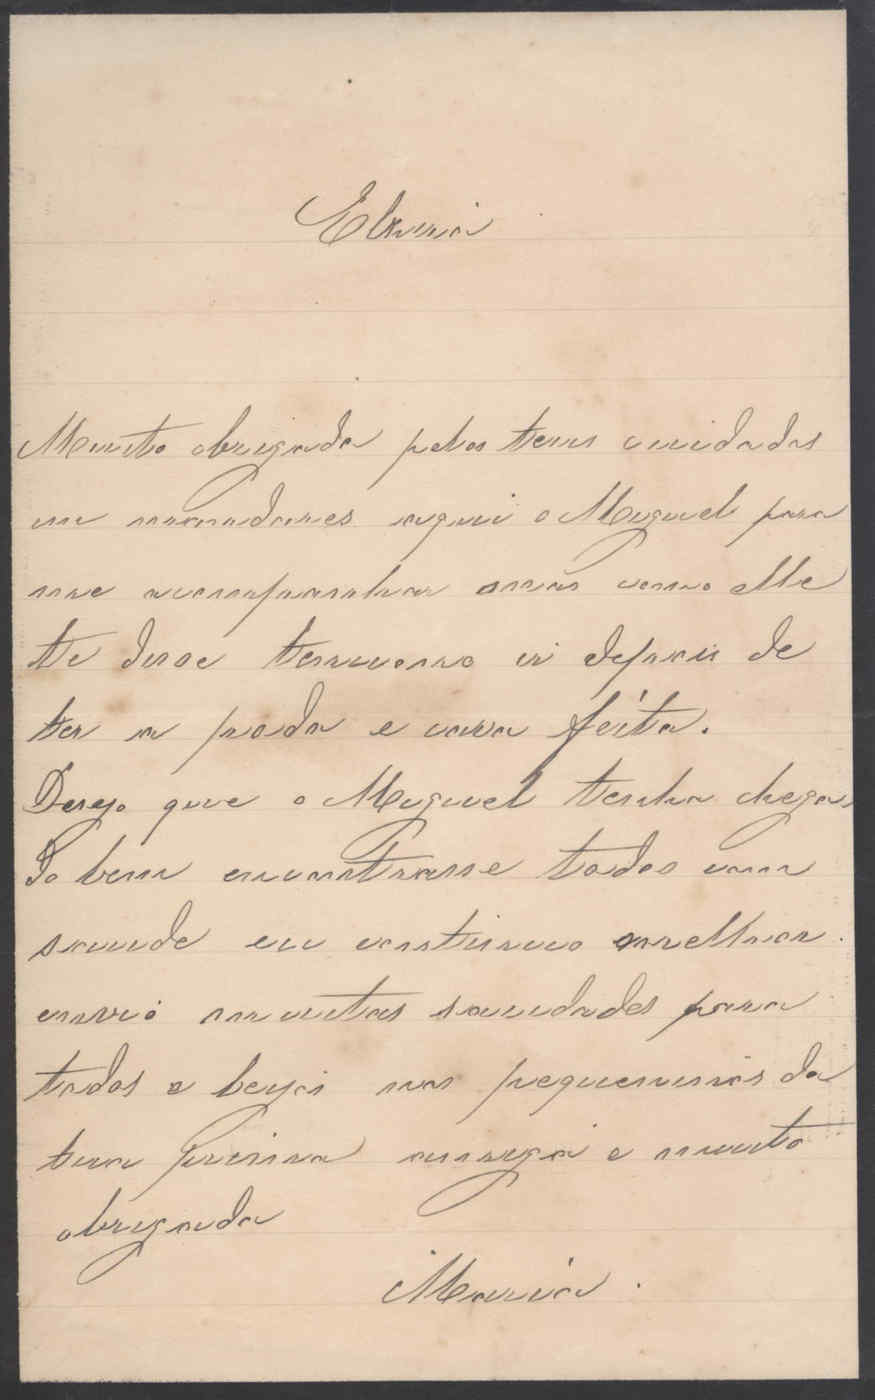 Elvira
Muito obrigada pelos teus cuidados
em mandares aqui o Miguel para
me acompanhar mas como elle
te disse tenciono ir depois de
ter a poda e cava feita.
Desejo que o Miguel tenha chega
do bem encontrasse todos com
saude eu continuo melhor.
envio muitas saudades para
todos e beijos nos pequeninos da
tua prima amiga e muito
obrigada
Maria.